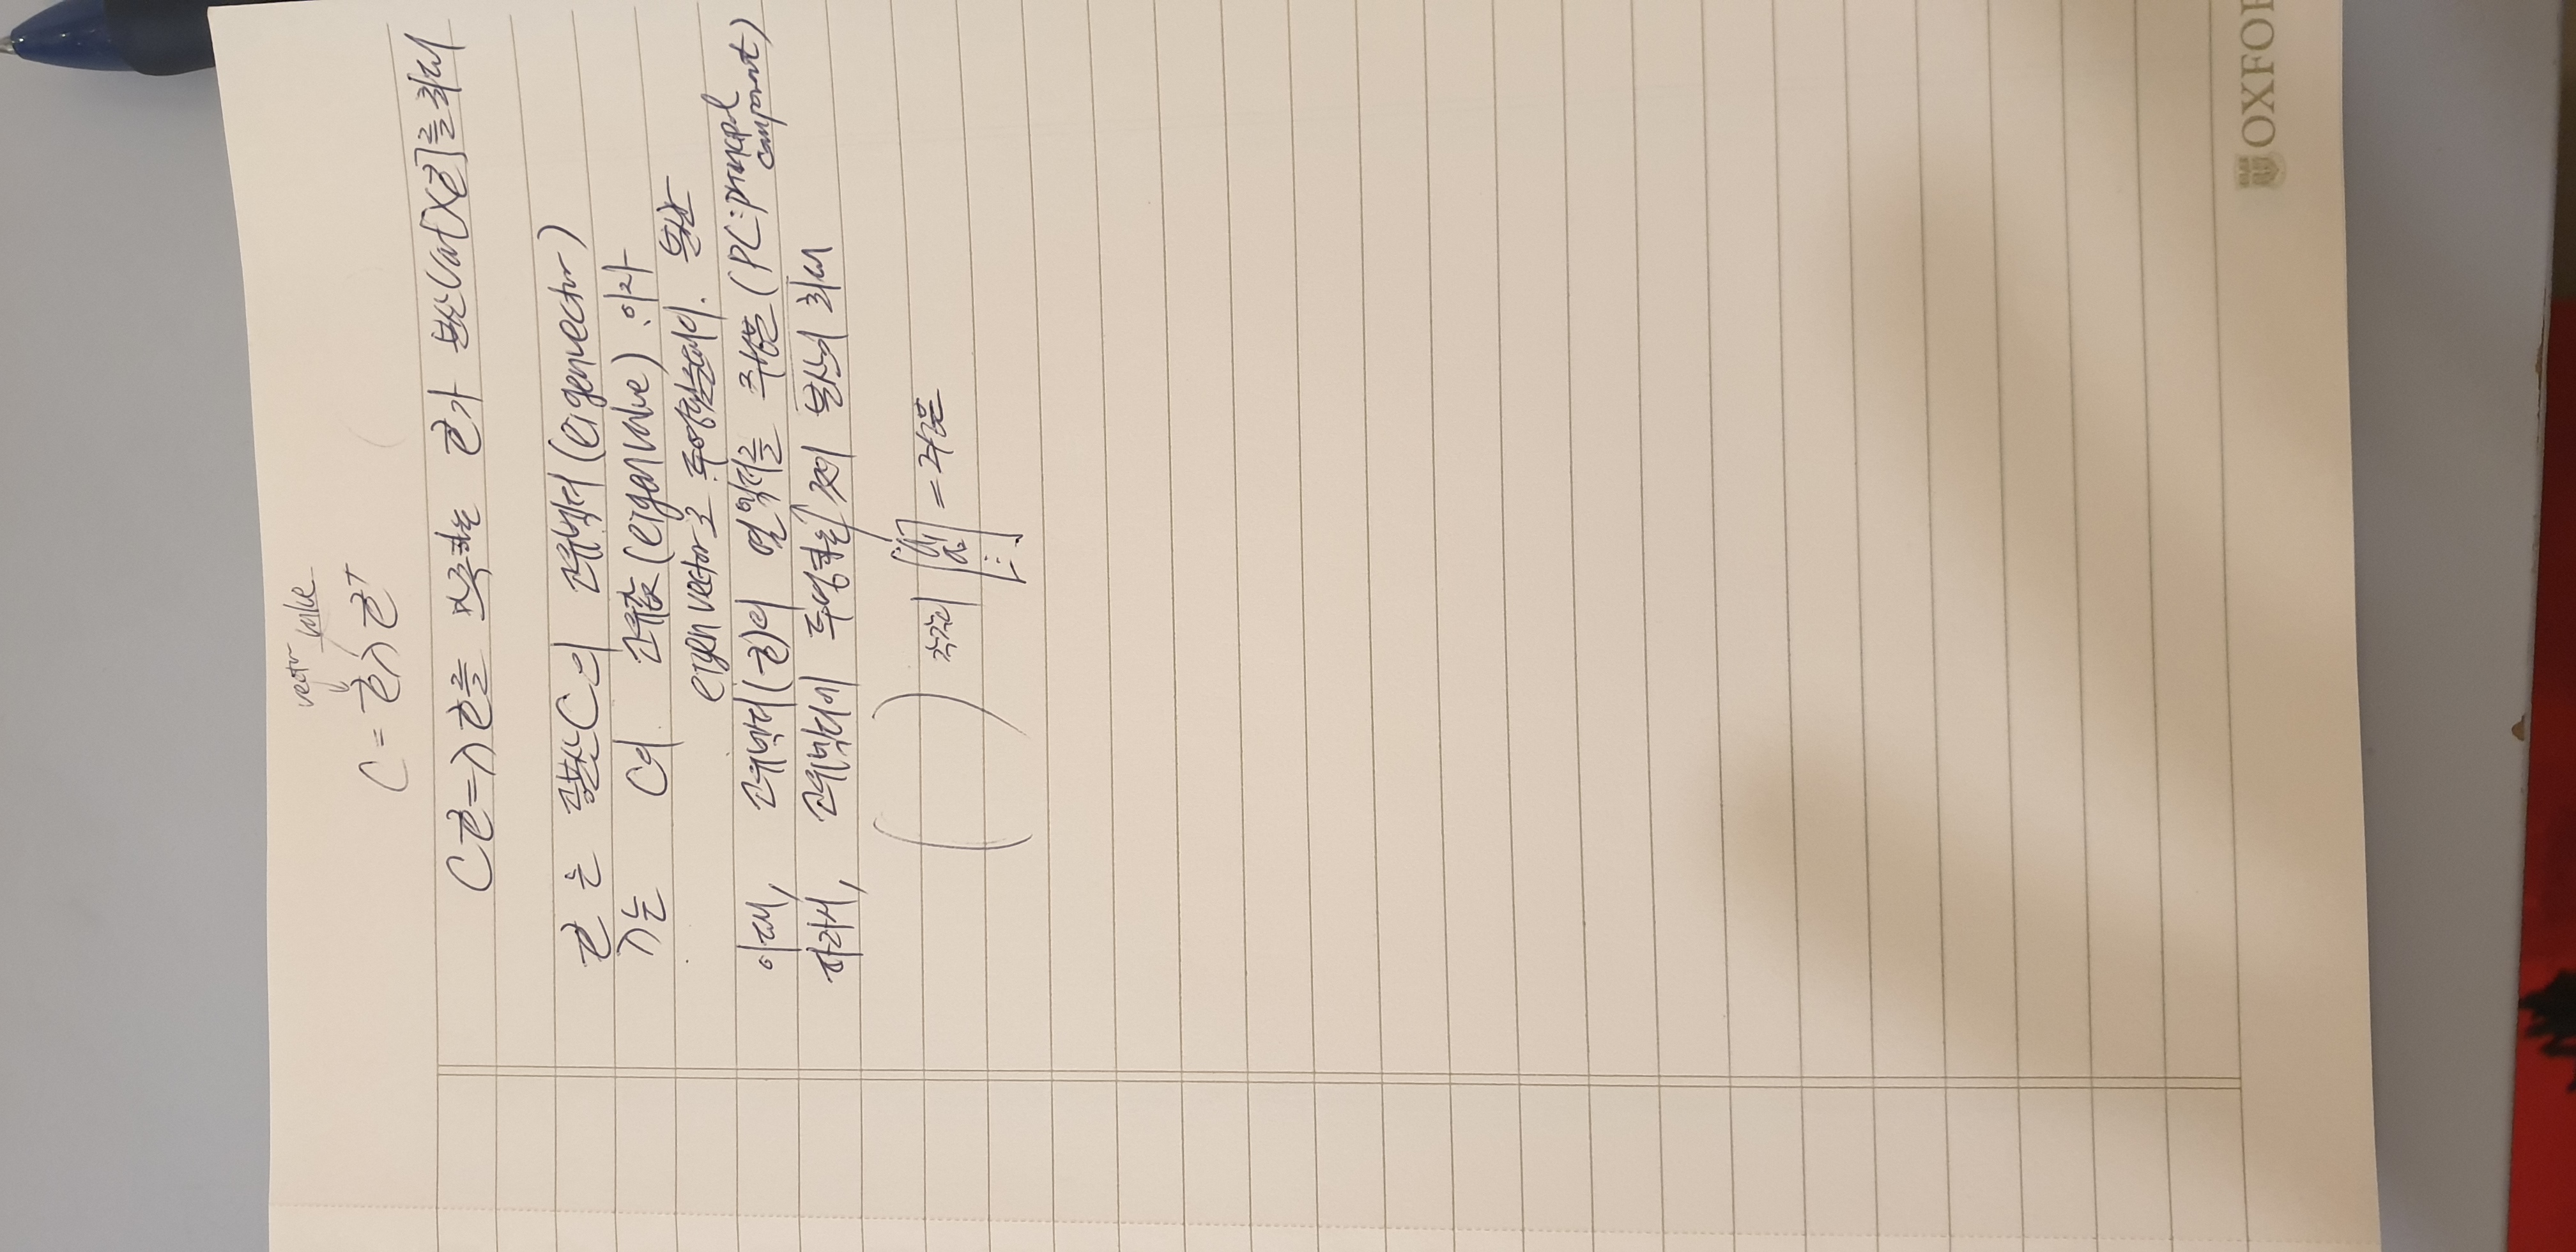 vector value
C = e⃗ λ e⃗ᵀ
Ce⃗ = λe⃗를 만족하는 e⃗가 분산Var[Xe⃗]를 최대
e⃗는 공분산C의 고유벡터(eigenvector)
λ는 C의 고유값(eigenvalue) 이자
eigenvector로 투영했을때의 분산
이때, 고유벡터(e⃗)의 열벡터를 주성분(PC:principal component)
따라서, 고유벡터에 투영하는 것이 분산의 최대
( ) 각각의 [a₁ a₂ ⋮] = 주성분
OXFOR